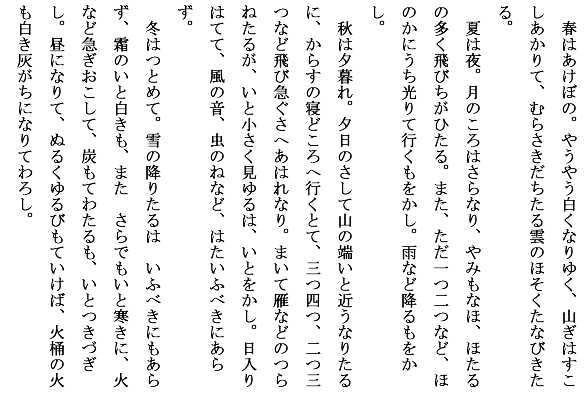 春はあけぼの。やうやう白くなりゆく、山ぎはすこ
しあかりて、むらさきだちたる雲のほそくたなびきた
る。
夏は夜。月のころはさらなり、やみもなほ、ほたる
の多く飛びちがひたる。また、ただ一つ二つなど、ほ
のかにうち光りて行くもをかし。雨など降るもをか
し。
秋は夕暮れ。夕日のさして山の端いと近うなりたる
に、からすの寝どころへ行くとて、三つ四つ、二つ三
つなど飛び急ぐさへあはれなり。まいて雁などのつら
ねたるが、いと小さく見ゆるは、いとをかし。日入り
はてて、風の音、虫のねなど、はたいふべきにあら
ず。
冬はつとめて。雪の降りたるは　いふべきにもあら
ず、霜のいと白きも、また　さらでもいと寒きに、火
など急ぎおこして、炭もてわたるも、いとつきづぎ
し。昼になりて、ぬるくゆるびもていけば、火桶の火
も白き灰がちになりてわろし。